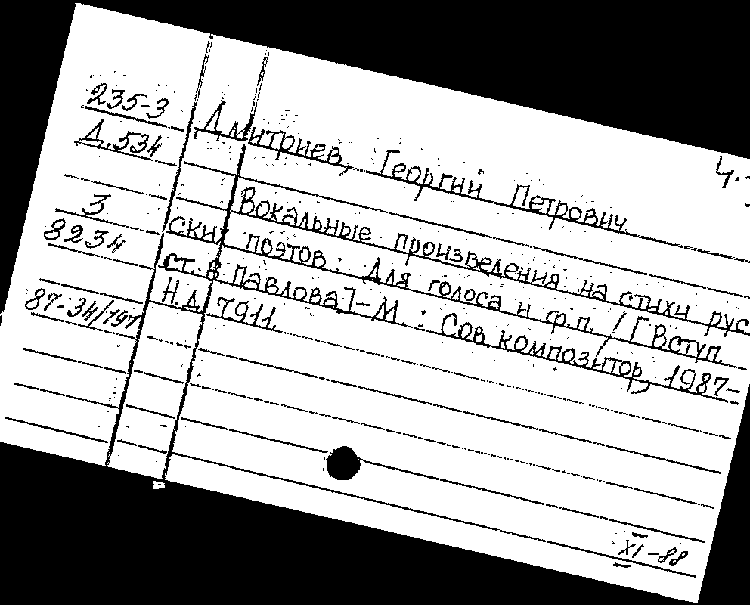 Ч.з
235-3
Д.534
Дмитриев, Георгий Петрович
Вокальные произведения на стихи рус
ских поэтов: Для голоса и ф.п. / [Вступ.
ст. В. Павлова]-М. : Сов композитор, 1987-
Н.д. 7911
3
8234
87-34/797
XI-88